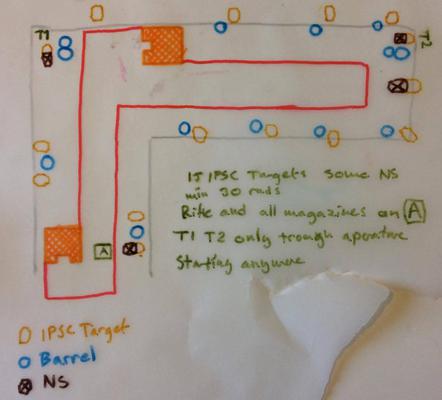 T1
T2
15 IPSC Targets some NS
min 30 rnds
Rifle and all magazines on A
T1 T2 only trough aperature
Starting anywere
A
IPSC Target
Barrel
NS